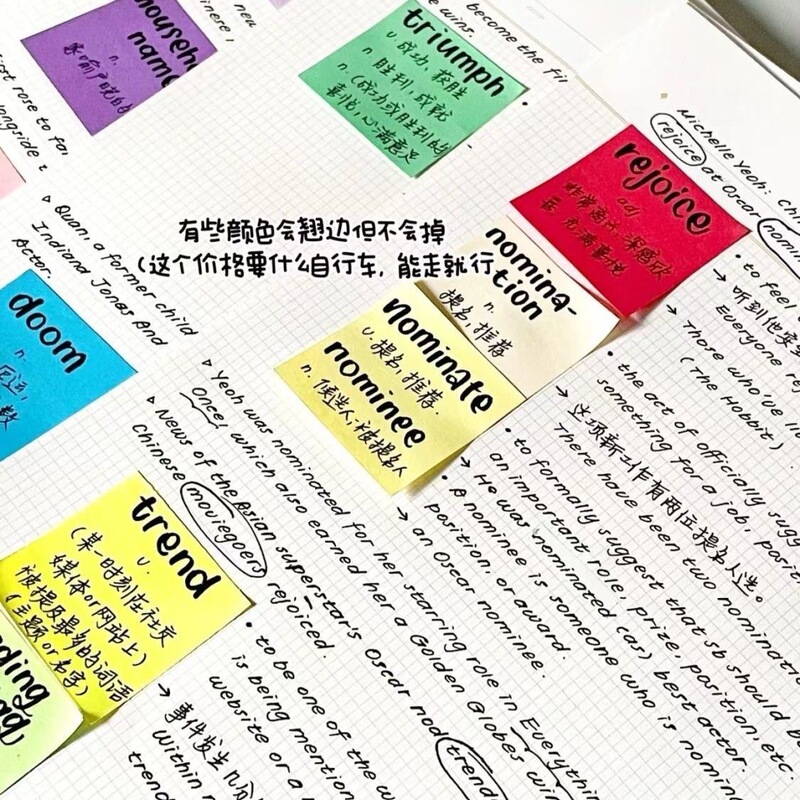 household
name
n.
triumph
v. 成功, 获胜
n 胜利, 成就
n. (成功或胜利的
喜悦, 心满意足
wins.
become the fir
new
rejoice
adj
充满喜悦
Michelle Yeoh: Chi
rejoice at Oscar nomin
有些颜色会翘边但不会掉
(这个价格要什么自行车, 能走就行
nomina-
tion
n.
提名, 推荐
nominate
v. 提名, 推荐.
nominee
n. 候选人, 被提名人
first rose to fa
alongside
Quan, a former child
Indiand Jones And
Actor.
doom
n.
厄运,
数
Yeoh was nominated for her starring role in Everythin
Once, which also earned her a Golden Globes win
News of the Asian superstar's Oscar nod trend
Chinese moviegoers rejoiced.
trend
v.
(某一时刻在社交
媒体or网站上)
被提及最多的词语
(主题or名字)
to feel
Everyone rej
Those who've li
(The Hobbit).
the act of officially sugg
something for a job, posit
这项新工作有两位提名人选。
There have been two nominatio
to formally suggest that sb should be
an important role, prize, position, etc.
He was nominated (as) best actor.
A nominee is someone who is nomin
position, or award.
an Oscar nominee.
to be one of the w
is being mention
website or a
事件发生几分
Within
trend